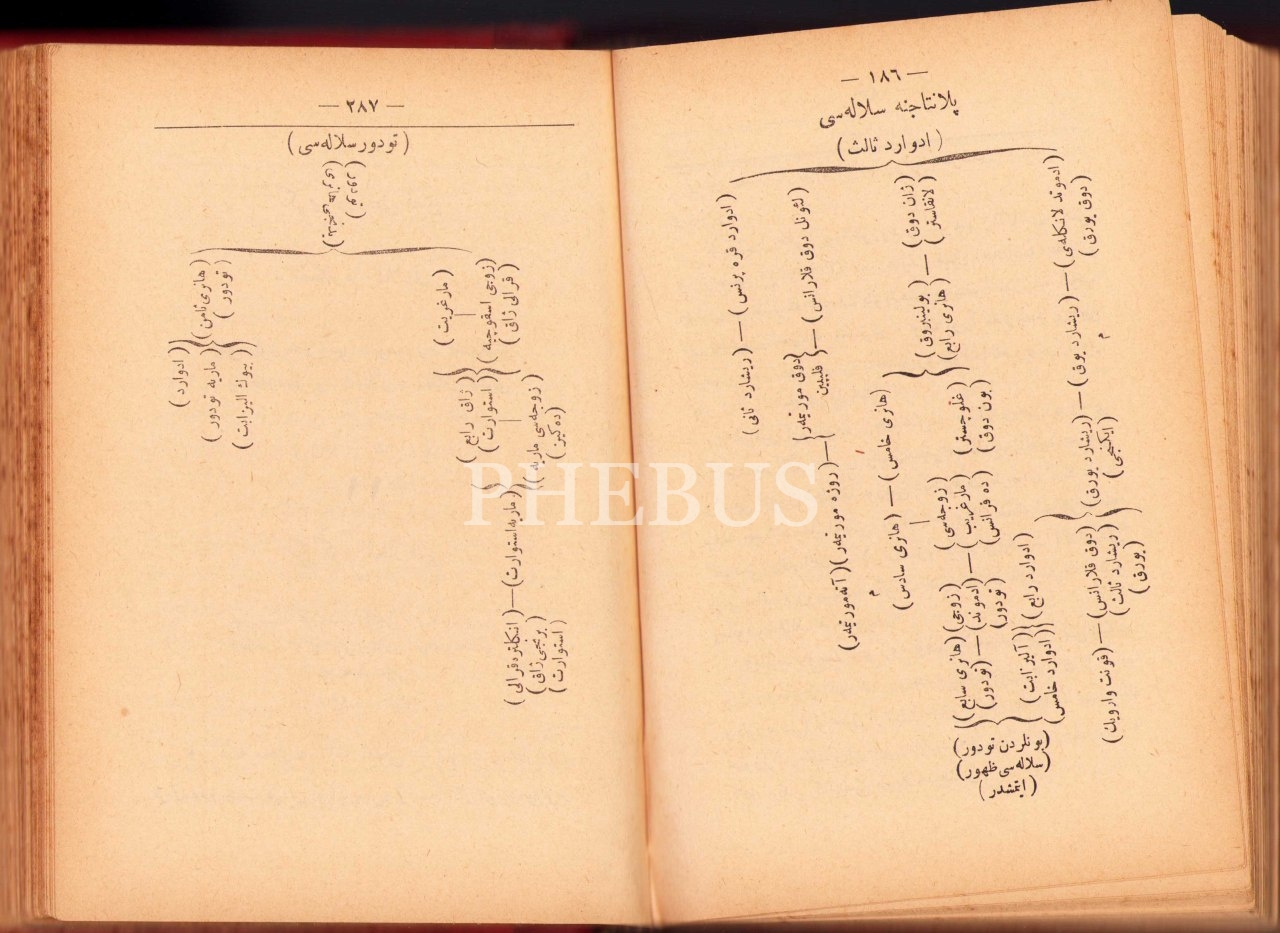 — ١٨٦ —
پلانتاجنه سلاله‌سی
(ادوارد ثالث)
(ادموند لانكله‌ی)
(دوق یورق)
(ژان دوق)
(لانقاستر)
(لئونل دوق قلارانس)
(ادوارد قره پرنس)
(ریشارد یوق)
م
(بولینبروق)
(هانری رابع)
(دوق مورتیمر)
فلیپین
(ریشارد ثانی)
(ریشارد یورق)
(ایكنجی)
(غلوچستر)
(بون دوق)
(هانری خامس)
(روژه مورتیمر)
(دوق قلارانس)
(ریشارد ثالث)
(یورق)
(ادوارد رابع)
(زوجه‌سی)
(مارغریب)
(ده فرانس)
(هانری سادس)
م
(آنه مورتیمر)
(قونت وارویك)
(زوجی)
(ادموند)
(تودور)
(آلیزابت)
(ادوارد خامس)
(هانری سابع)
(تودور)
(بونلردن تودور)
(سلاله‌سی ظهور)
(ایتمشدر)
— ٢٨٧ —
(تودور سلاله‌سی)
(یدنجی هانری)
(تودور)
(زوجی اسقوچیه)
(قرالی ژاق)
(مارغریت)
(هانری ثامن)
(تودور)
(ژاق رابع)
(استوارت)
(زوجه‌سی ماریه)
(ده كیز)
(ادوارد)
(ماریه تودور)
(بیوك الیزابت)
(ماریه استوارت)
(انكلتره قرالی)
(برنجی ژاق)
(استوارت)
PHEBUS